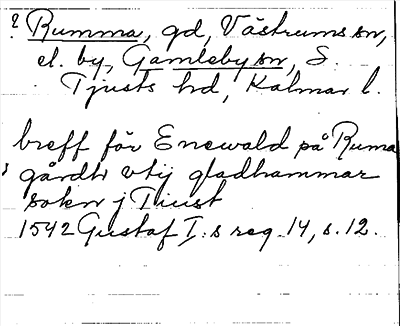 ? Rumma, gd, Västrums sn,
el. by, Gamleby sn, S.
Tjusts hd, Kalmar l.
breff för Enewald på Ruma
gårdh vtij gladhammar
sokn j Tiust
1542 Gustaf I:s reg. 14, s. 12.